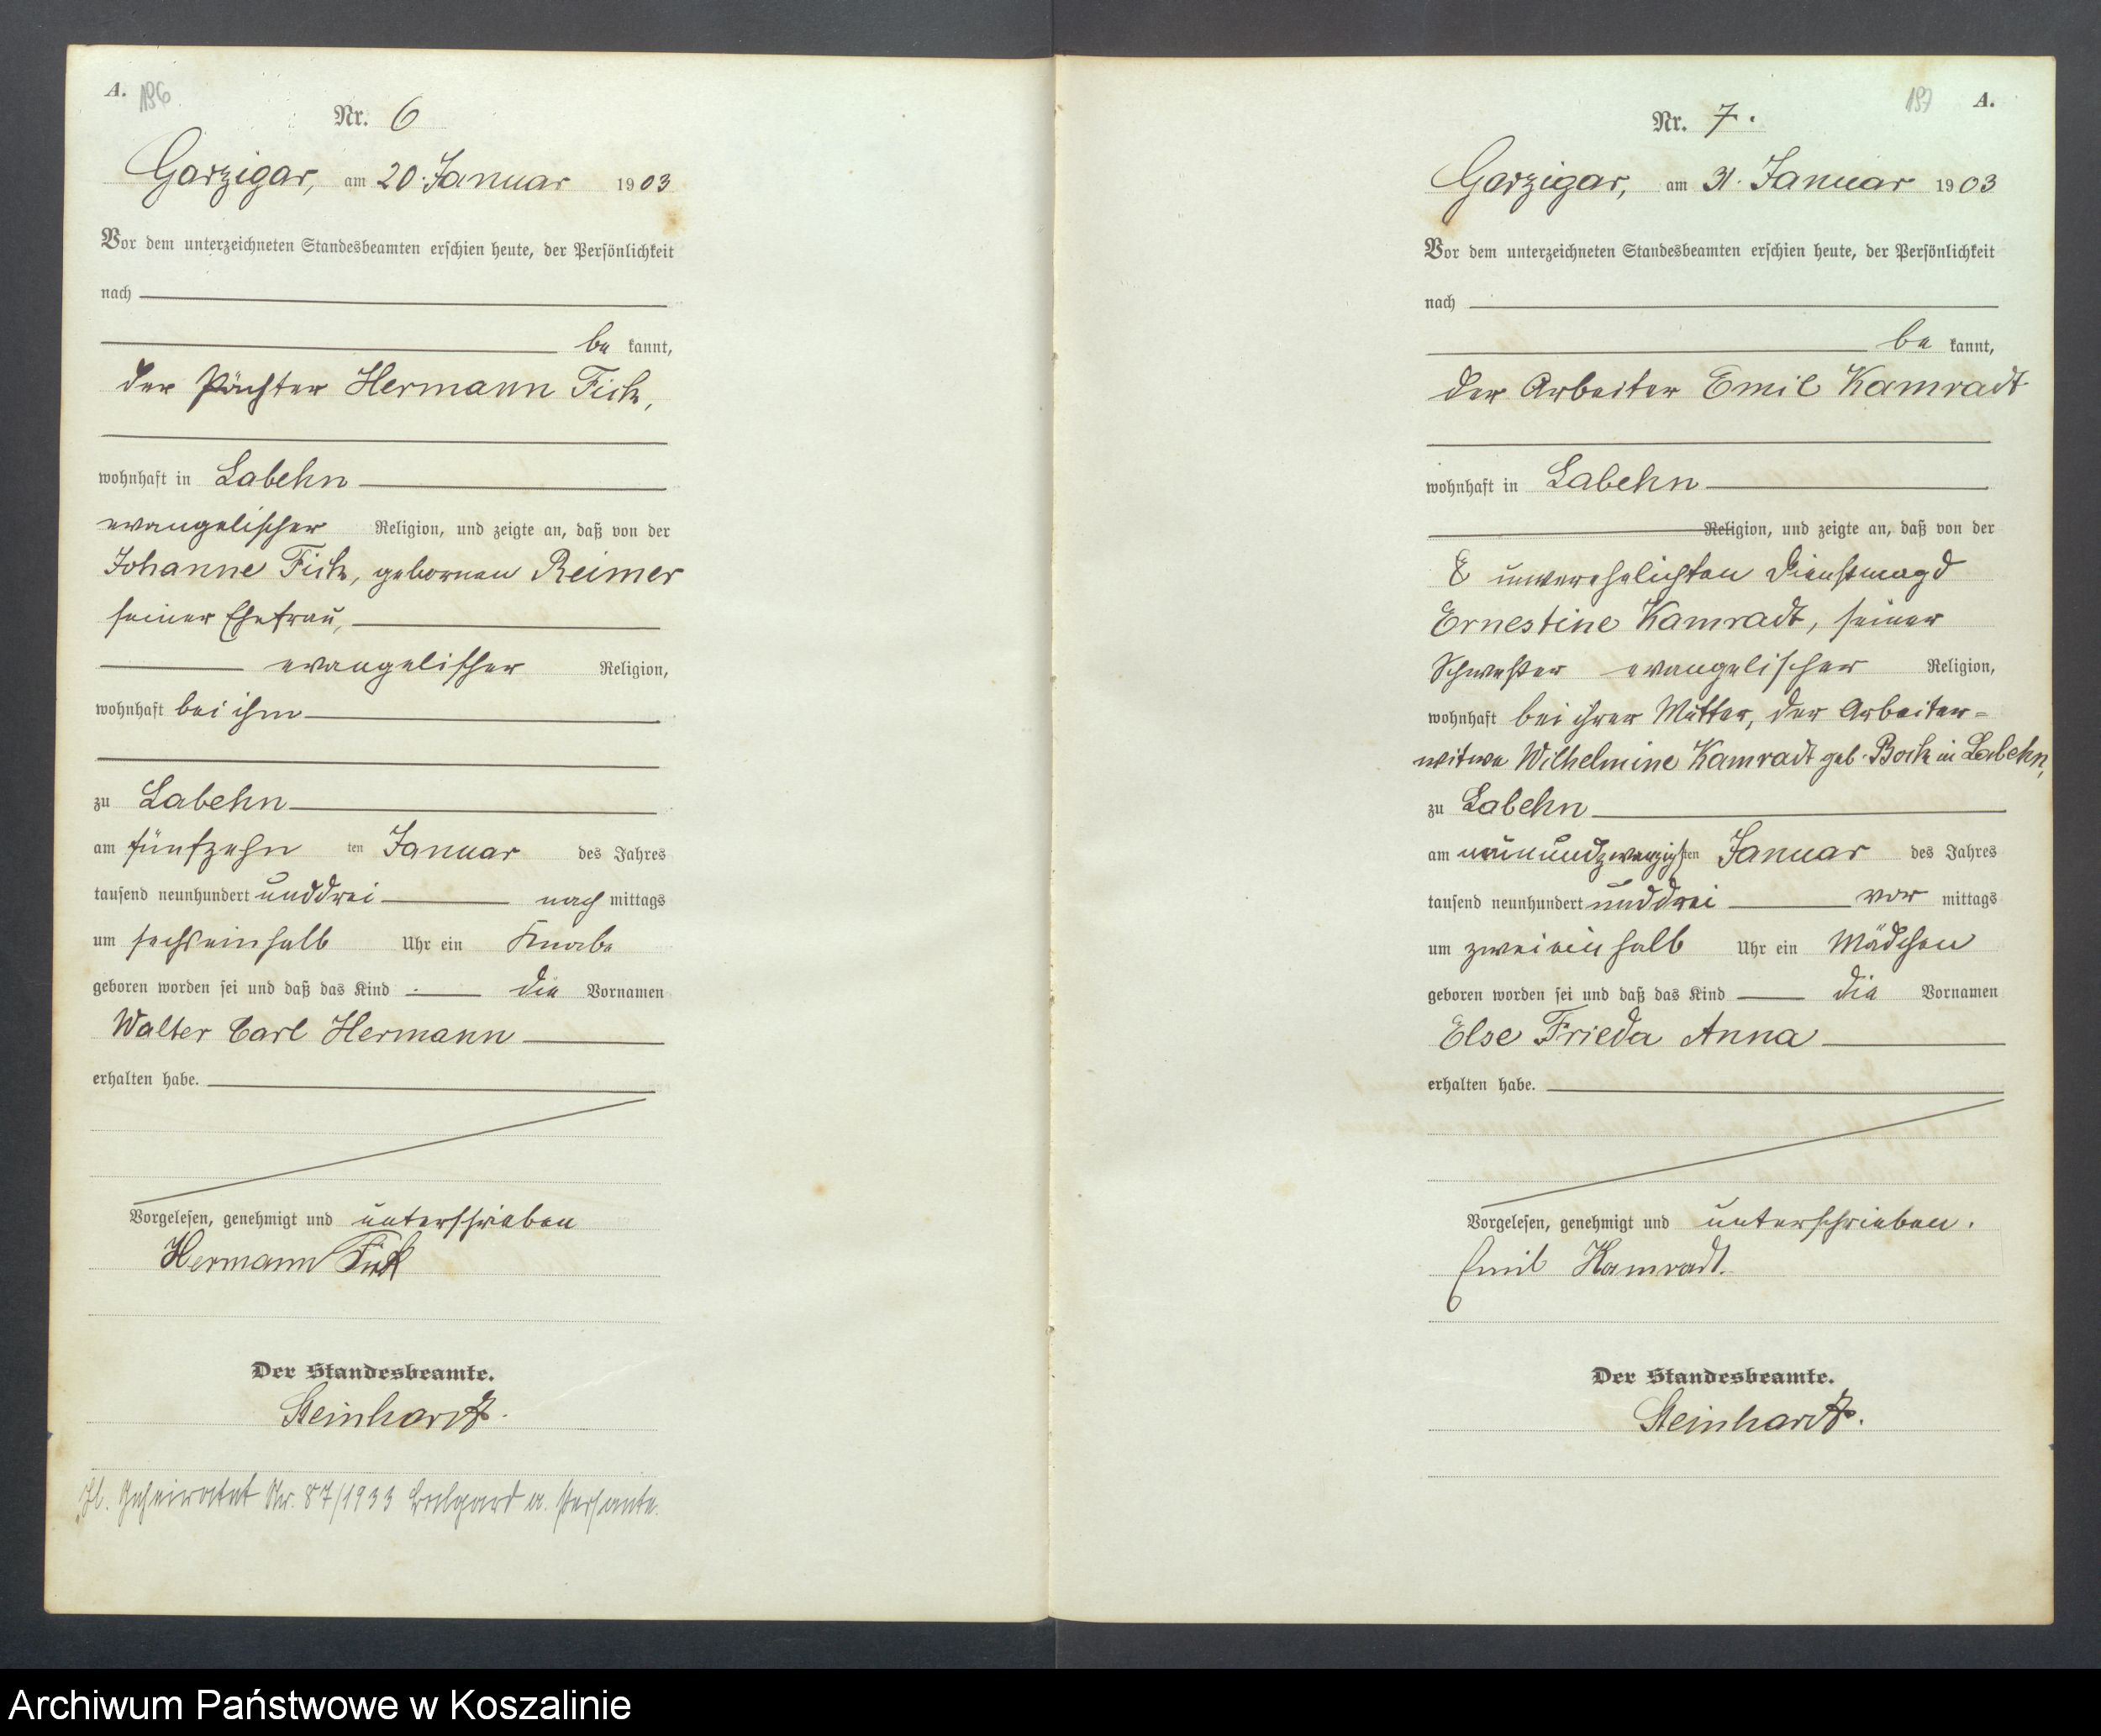 A. 196
Nr. 6
Garzigar, am 20. Januar 1903
Vor dem unterzeichneten Standesbeamten erschien heute, der Persönlichkeit
nach
be kannt,
der Pächter Hermann Fick,
wohnhaft in Labehn
evangelischer Religion, und zeigte an, daß von der
Johanne Fick, gebornen Reimer
seiner Ehefrau,
evangelischer Religion,
wohnhaft bei ihm
zu Labehn
am fünfzehn ten Januar des Jahres
tausend neunhundert unddrei nach mittags
um sechseinhalb Uhr ein Knabe
geboren worden sei und daß das Kind die Vornamen
Walter Carl Hermann
erhalten habe.
Vorgelesen, genehmigt und unterschrieben
Hermann Fick
Der Standesbeamte.
Steinhardt.
Geheiratet Nr. 87/1933 Belgard a. Persante.
197 A.
Nr. 7.
Garzigar, am 31. Januar 1903
Vor dem unterzeichneten Standesbeamten erschien heute, der Persönlichkeit
nach
be kannt,
der Arbeiter Emil Kamradt
wohnhaft in Labehn
Religion, und zeigte an, daß von der
unverehelichten Dienstmagd
Ernestine Kamradt, seiner
Schwester evangelischer Religion,
wohnhaft bei ihrer Mutter, der Arbeiter=
witwe Wilhelmine Kamradt geb. Bock in Labehn,
zu Labehn
am neunundzwanzigsten Januar des Jahres
tausend neunhundert unddrei vor mittags
um zweieinhalb Uhr ein Mädchen
geboren worden sei und daß das Kind die Vornamen
Else Frieda Anna
erhalten habe.
Vorgelesen, genehmigt und unterschrieben.
Emil Kamradt.
Der Standesbeamte.
Steinhardt.
Archiwum Państwowe w Koszalinie